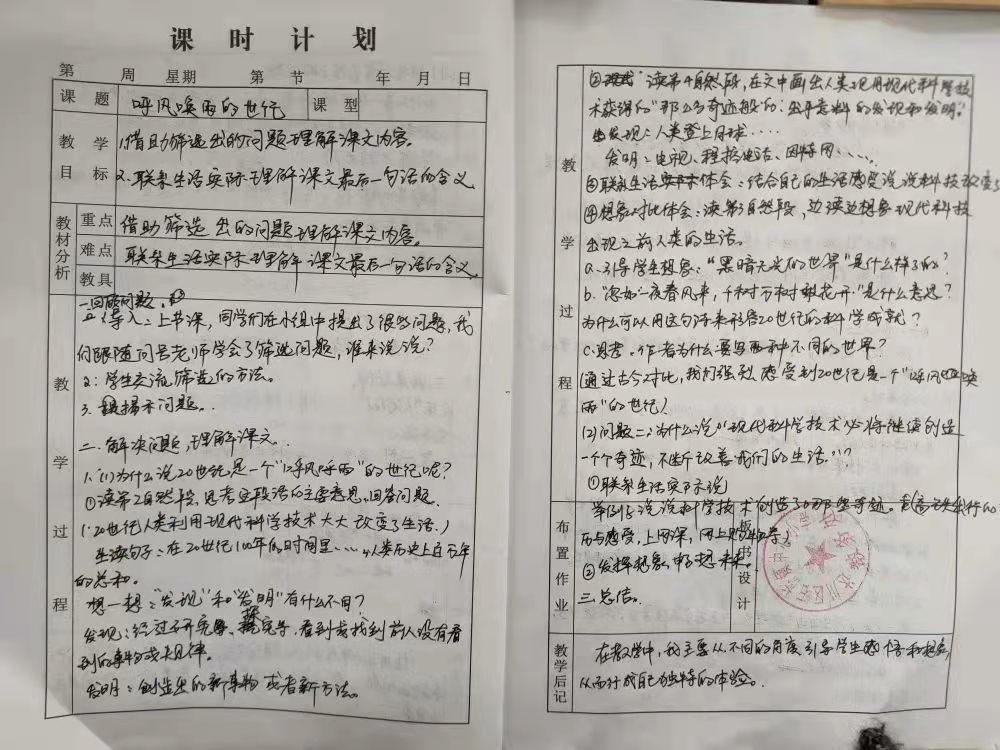 课时计划
第 周 星期 第 节 年 月 日
课题 呼风唤雨的世纪 课型
教学目标 1.借助筛选出的问题理解课文内容。
2.联系生活实际理解课文最后一句话的含义
教材分析 重点 借助筛选出的问题理解课文内容。
难点 联系生活实际理解课文最后一句话的含义。
教具
教学过程
一.回顾问题。
1.导入:上节课,同学们在小组中提出了很多问题,我
们跟随问号老师学会了筛选问题,谁来说说?
2.学生交流筛选的方法。
3.出示问题。
二.解决问题,理解课文。
1.(1)为什么说20世纪是一个“呼风唤雨”的世纪呢?
①读第2自然段,思考这段话的主要意思,回答问题。
(20世纪人类利用现代科学技术大大改变了生活.)
生读句子:在20世纪100年的时间里……人类历史上百万年
的总和。
想一想:“发现”和“发明”有什么不同?
发现:经过研究、探索,看到或找到前人没有看
到的事物或规律。
发明:创造出的新事物或者新方法。
教学过程
②读第4自然段,在文中画出人类利用现代科学技
术获得的“那么多奇迹般的、出乎意料的发现和发明”。
发现:人类登上月球……
发明:电视、程控电话、因特网……
③联系生活实际体会:结合自己的生活感受说说科技改变了
④想象对比体会:读第3自然段,边读边想象现代科技
出现之前人类的生活。
a.引导学生想象:“黑暗无光的世界”是什么样子的?
b.“忽如一夜春风来,千树万树梨花开”是什么意思?
为什么可以用这句诗来形容20世纪的科学成就?
c.思考。作者为什么要写两种不同的世界?
(通过古今对比,我们强烈感受到20世纪是一个“呼风唤
雨”的世纪)
(2)问题二:为什么说“现代科学技术必将继续创造
一个个奇迹,不断改善我们的生活”?
①联系生活实际说
举例子说说科学技术创造了哪些奇迹。
历与感受,上网课,网上购物等)
②发挥想象,畅想未来。
三.总结。
布置作业
板书设计
教学后记 在教学中,我主要从不同的角度引导学生感悟和想象,
从而形成自己独特的体验。